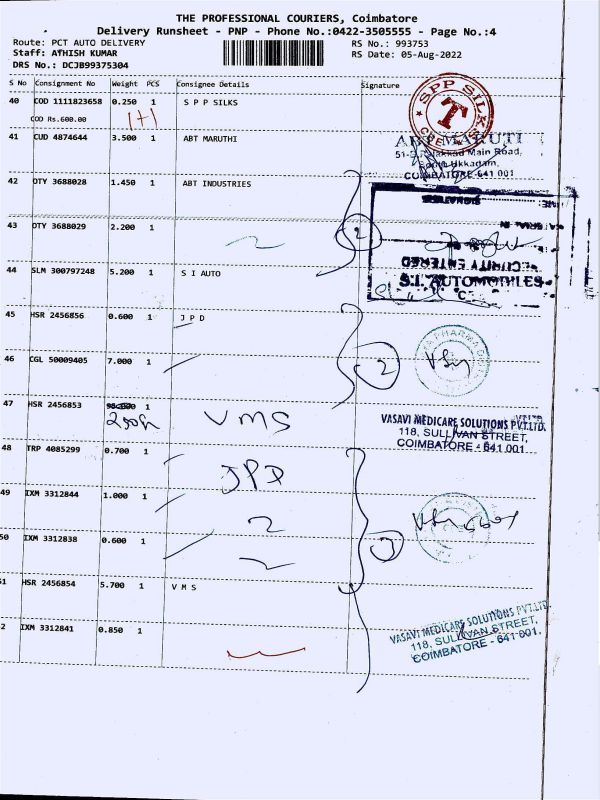 THE PROFESSIONAL COURIERS, Coimbatore
Delivery Runsheet - PNP - Phone No.:0422-3505555 - Page No.:4
Route: PCT AUTO DELIVERY
RS No.: 993753
Staff: ATHISH KUMAR
RS Date: 05-Aug-2022
DRS No.: DCJB99375304
S No Consignment No Weight PCS Consignee Details Signature
40 COD 1111823658 0.250 1 S P P SILKS
COD Rs.600.00
1+1
SPP SILKS
T
CBE
41 CUD 4874644 3.500 1 ABT MARUTHI
ABT MARUTI
Main Road,
Ukkadam,
COIMBATORE-641 001
42 DTY 3688028 1.450 1 ABT INDUSTRIES
43 DTY 3688029 2.200 1
2
SIGNATURE
SECURITY ENTERED
44 SLM 300797248 5.200 1 S I AUTO
S.I. AUTOMOBILES
45 HSR 2456856 0.600 1 J P D
46 CGL 50009405 7.000 1
2
47 HSR 2456853 1
VMS
VASAVI MEDICARE SOLUTIONS PVT.LTD.
118, SULLIVAN STREET,
COIMBATORE - 641 001.
48 TRP 4085299 0.700 1
JPD
49 IXM 3312844 1.000 1
50 IXM 3312838 0.600 1
51 HSR 2456854 5.700 1 V M S
52 IXM 3312841 0.850 1
VASAVI MEDICARE SOLUTIONS PVT.LTD.
118, SULLIVAN STREET,
COIMBATORE - 641 001.